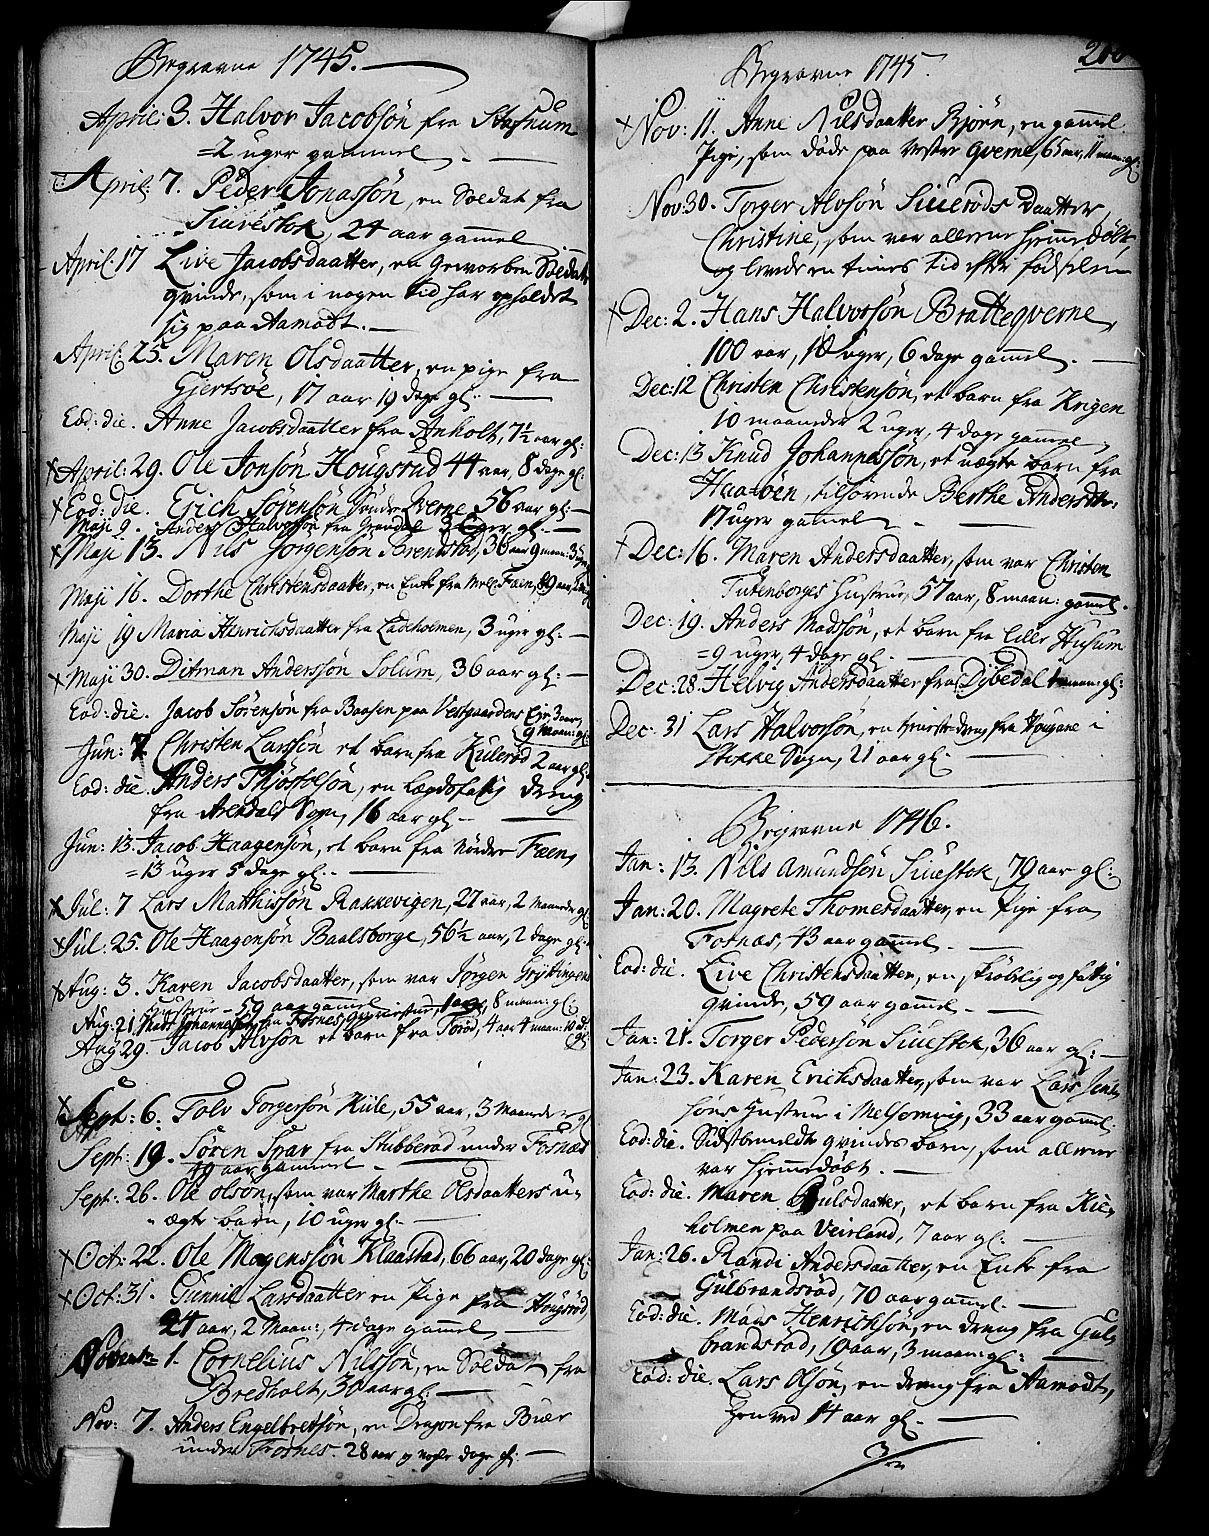 Begravne 1745.
April: 3. Halvor Jacobsön fra Stafnum
=2 uger gammel.
April: 7. Peder Jonassön, en Soldat fra
Siuvestok, 24 aar gammel
April: 17 Live Jacobsdaatter, en Geworben Soldat
qvinde, som i nogen tid har opholdet
sig paa Aamodt.
April: 25. Maren Olsdaatter, en pige fra
Gjertsöe, 17 aar 19 dage gl:
Eod: die. Anne Jacobsdaatter fra Anholt, 7½ aar gl:
April: 29. Ole Jonsön Hougsrud 44 aar, 8 dage gl:
Eod: die. Erich Sörensön Söndre Qverne 56 aar gl:
Maji 9. Anders Halvorsön fra 3 uger gl:
Maji 13. Nils Jörgensön Brendstad, 36 aar 9 maan: 3
Maji 16. Dorthe Christensdaatter, en Enke fra Mell: Faen, 89 aar,
Maji 19 Maria Henrichsdaatter fra Ladeholmen, 3 uger gl:
Maji 30. Ditman Anderssön Solum, 36 aar gl:
Eod: die. Jacob Sörensön fra Baasen paa Vestgaardens Eje, 3 aar,
9 Maan: gl:
Jun: 7 Christen Larssön et barn fra Kulerød 2 aar gl:
Eod: die. Anders Thjosfolsön, en Lægdsfattig dreng
fra Arendals Sogn, 16 aar gl:
Jun: 13. Jacob Haagensön, et barn fra Nördre Faen,
=13 uger 5 dage gl:
Jul: 7 Lars Matthissön Rakkevigen, 27 aar, 2 Maaneder gl
Jul: 25. Ole Haagensön Baalsborge, 56½ aar, 2 dage gl:
Aug: 3. Karen Jacobsdaatter, som var Jörgen Gryttingens
Hustrue - 59 aar gammel
Aug: 21 Mads Johannessön fra Fornes 1 aar, 8 maan: gl:
Aug 29. Jacob Alvsön et barn fra Torød, 4 aar 4 maan: 10 d: gl:
Sept: 6. Tolv Torgersön Hiile, 55 aar, 3 Maaneder gl
Sept: 19. Sören Spar fra Stubberød under Fosnæs
49 aar gammel
Sept: 26. Ole Olsön, som var Marthe Olsdaatters u-
ægte barn, 10 uge gl.
Oct: 22. Ole Mogenssön Klaastad, 66 aar, 20 dage gl:
Oct: 31. Gunnil Larsdaatter en Pige fra Hougsrød,
24 aar, 2 Maan:, 4 dage gammel
Novemb: 1. Cornelius Nilssön, en Soldat fra
Bredholt, 30 aar gl:
Nov: 7. Anders Engelbretsön, en Dragon fra Buer
under Fosnes. 28 aar og nogle dage gl:
Begravne 1745.
Nov: 11. Anne Nilsdaatter Bjørn, en gammel
Pige, som döde paa Vestre Qverne, 65 aar, 11 maan: gl:
Nov: 30. Torger Alvsön Siuerøds Daatter
Christine, som var allene hjemmedöbt,
og levede en times tid efter födselen
Dec: 2. Hans Halvorsön Brattegverne,
100 aar, 18 uger, 6 dage gammel.
Dec: 12 Christen Christensön, et barn fra Krigen
10 maaneder 2 uger, 4 dage gammel
Dec: 13 Knud Johannessön, et uægte barn fra
Haa=öen, tilhörende Berthe Andersdtr:
17 uger gammel
Dec: 16. Maren Andersdaatter, som var Christen
Tutenborges Hustrue, 57 aar, 8 maan: gammel.
Dec: 19. Anders Madssön, et barn fra Lille Husum
=9 uger, 4 dage gl:
Dec: 28. Helvig Andersdaatter fra Dybedal maan: gl:
Dec: 31 Lars Halvorsön, en tienistedreng, fra Hougane i
Stokke Sogn, 21 aar gl.
Begravne 1746.
Jan: 13. Nils Amundsön Siuestok, 79 aar gl:
Jan: 20. Magrete Thomesdaatter, en Pige fra
Fornæs, 43 aar gammel.
Eod: die. Live Christensdaatter, en skröblig og fattig
qvinde, 59 aar gammel.
Jan: 21. Torger Pedersön Siuestok, 36 aar gl:
Jan: 23. Karen Erichsdaatter, som var Lars Jens-
söns Hustrue i Melsomvig, 33 aar gammel.
Eod: die. Sidstbemeldte qvindes barn, som allene
var hjemmedöbt.
Eod: die. Maren Poulsdaatter, et barn fra Kie-
holmen paa Veirland, 7 aar gl:
Jan: 26. Randi Andersdaatter, en Enke fra
Gulbrandsrød, 70 aar gammel.
Eod: die. Mads Henrichsön, en dreng fra Gul-
brandsrød, 19 aar, 3 maan: gl:
Eod: die. Lars Olsön, en dreng fra Aamodt,
henved 14 aar gl.